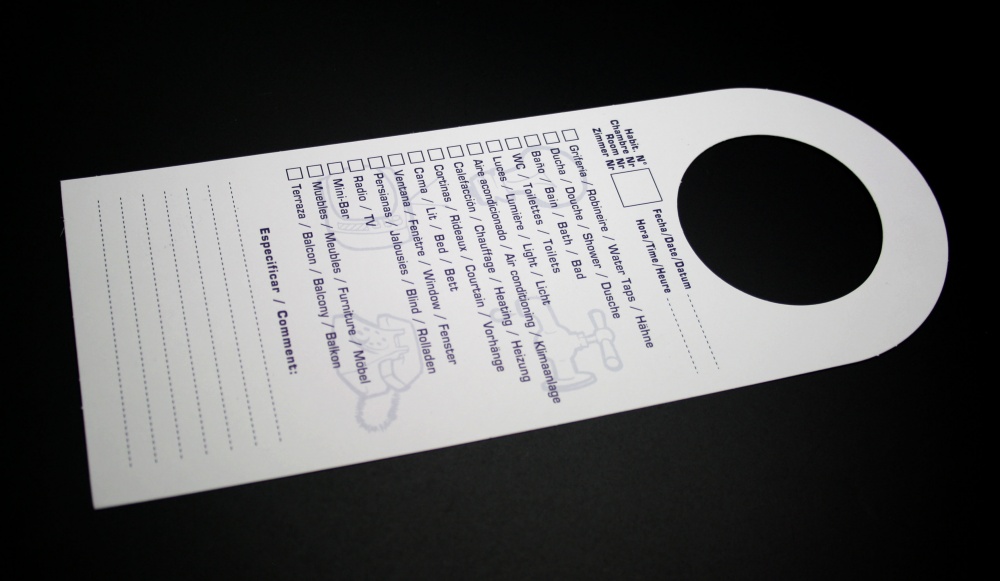 Habit. N°
Chambre Nr
Room Nr
Zimmer Nr
Fecha/Date/Datum
Hora/Time/Heure
Grifería / Robineire / Water Taps / Hähne
Ducha / Douche / Shower / Dusche
Baño / Bain / Bath / Bad
WC / Toilettes / Toilets
Luces / Lumière / Light / Licht
Aire acondicionado / Air conditioning / Klimaanlage
Calefacción / Chauffage / Heating / Heizung
Cortinas / Rideaux / Courtain / Vorhänge
Cama / Lit / Bed / Bett
Ventana / Fenètre / Window / Fenster
Persianas / Jabusies / Blind / Rolladen
Radio / TV
Mini-Bar
Muebles / Meubles / Furniture / Möbel
Terraza / Balcon / Balcony / Balkon
Especificar / Comment: